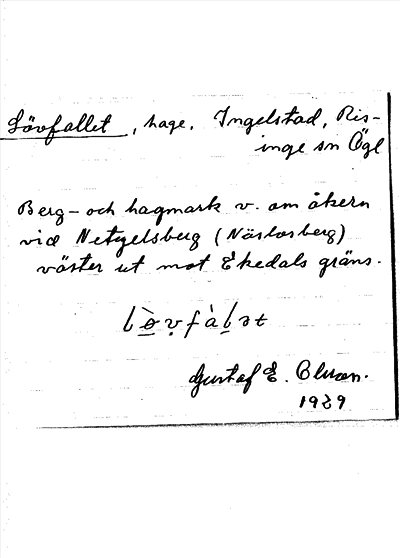 Lövfallet, hage, Ingelstad, Ris-
inge sn Ögl
Berg- och hagmark v. om åkern
vid Netzelsberg (Näslosberg)
väster ut mot Ekedals gräns.
lø̀vfàlət
Gustaf E.
1929